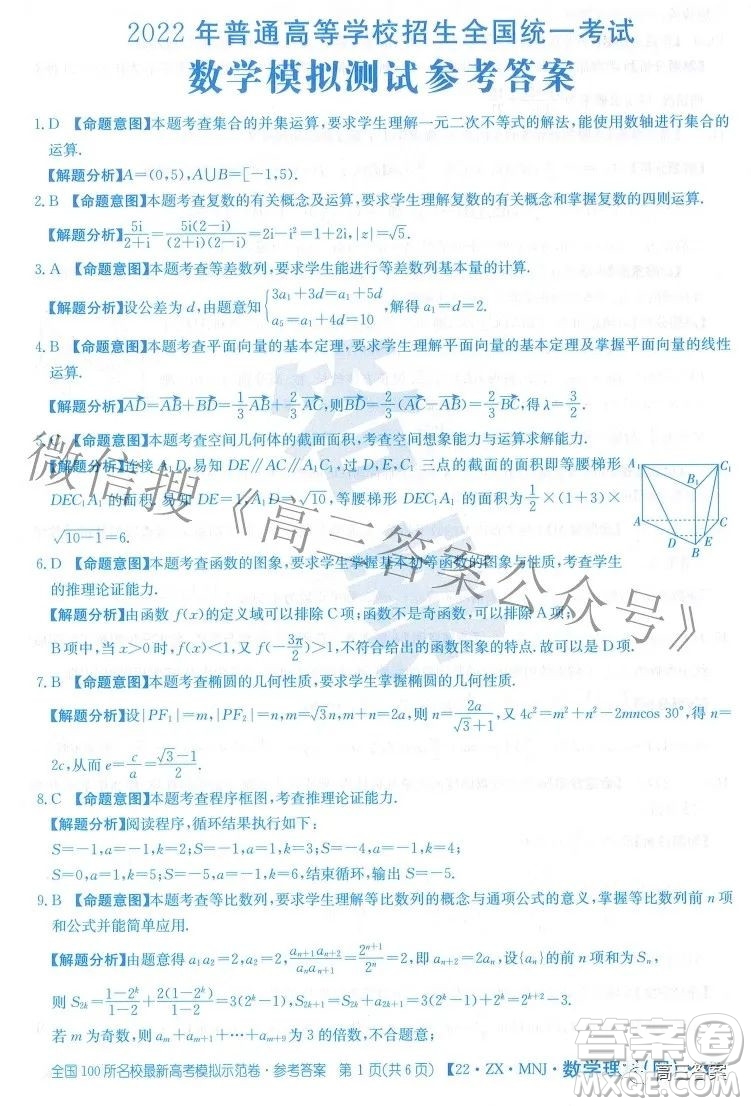 2022年普通高等学校招生全国统一考试
数学模拟测试参考答案
1.D 【命题意图】本题考查集合的并集运算,要求学生理解一元二次不等式的解法,能使用数轴进行集合的
运算.
【解题分析】A=(0,5),A∪B=[-1,5).
2.B 【命题意图】本题考查复数的有关概念及运算,要求学生理解复数的有关概念和掌握复数的四则运算.
【解题分析】5i/(2+i)=5i(2-i)/((2+i)(2-i))=2i-i²=1+2i,|z|=√5.
3.A 【命题意图】本题考查等差数列,要求学生能进行等差数列基本量的计算.
【解题分析】设公差为d,由题意知{3a₁+3d=a₁+5d a₅=a₁+4d=10,解得a₁=d=2.
4.B 【命题意图】本题考查平面向量的基本定理,要求学生理解平面向量的基本定理及掌握平面向量的线性
运算.
【解题分析】AD=AB+BD=1/3 AB+2/3 AC,则BD=2/3(AC-AB)=2/3 BC,得λ=3/2.
【命题意图】本题考查空间几何体的截面面积,考查空间想象能力与运算求解能力.
【解题分析】连接A₁D,易知DE∥AC∥A₁C₁,过D,E,C₁三点的截面的面积即等腰梯形
DEC₁A₁的面积,易知DE=1,A₁D=√10,等腰梯形DEC₁A₁的面积为1/2×(1+3)×
√(10-1)=6.
A₁ C₁
B₁
A C
D B E
6.D 【命题意图】本题考查函数的图象,要求学生掌握基本初等函数的图象与性质,考查学生
的推理论证能力.
【解题分析】由函数f(x)的定义域可以排除C项;函数不是奇函数,可以排除A项;
B项中,当x>0时,f(x)<1,又f(-3π/2)>1,不符合给出的函数图象的特点.故可以是D项.
7.B 【命题意图】本题考查椭圆的几何性质,要求学生掌握椭圆的几何性质.
【解题分析】设|PF₁|=m,|PF₂|=n,m=√3n,m+n=2a,则n=2a/(√3+1),又4c²=m²+n²-2mncos 30°,得n=
2c,从而e=c/a=(√3-1)/2.
8.C 【命题意图】本题考查程序框图,考查推理论证能力.
【解题分析】阅读程序,循环结果执行如下:
S=-1,a=1,k=2;S=-1,a=-1,k=3;S=-4,a=1,k=4;
S=0,a=-1,k=5;S=-5,a=1,k=6,结束循环,输出S=-5.
9.B 【命题意图】本题考查等比数列,要求学生理解等比数列的概念与通项公式的意义,掌握等比数列前n项
和公式并能简单应用.
【解题分析】由题意得a₁a₂=2,a₂=2,aₙ₊₁aₙ₊₂/(aₙaₙ₊₁)=2ⁿ⁺¹/2ⁿ=2,即aₙ₊₂=2aₙ,设{aₙ}的前n项和为Sₙ,
则S₂ₖ=(1-2ᵏ)/(1-2)+2(1-2ᵏ)/(1-2)=3(2ᵏ-1),S₂ₖ₊₁=S₂ₖ+a₂ₖ₊₁=3(2ᵏ-1)+2ᵏ=2ᵏ⁺²-3.
若m为奇数,则aₘ₊₁+aₘ₊₂+…+aₘ₊ₙ为3的倍数,不合题意;
全国100所名校最新高考模拟示范卷·参考答案 第1页(共6页) 【22·ZX·MNJ·数学理
微信搜《高三答案公众号》
答案
答案圈
高三答案